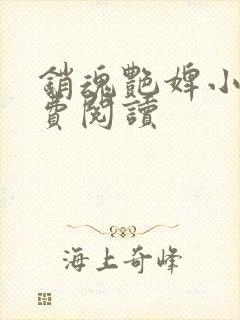 銷魂艷婢小
費閱讀
海上奇峰